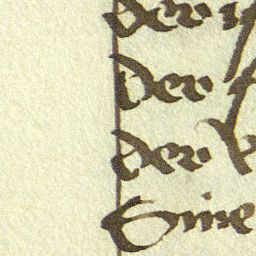 der
der
der
Sine